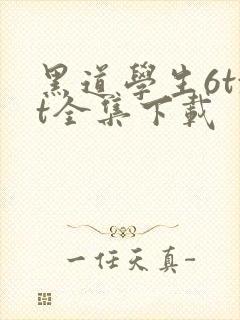 黑道學生6tx
t全集下載
一任天真-